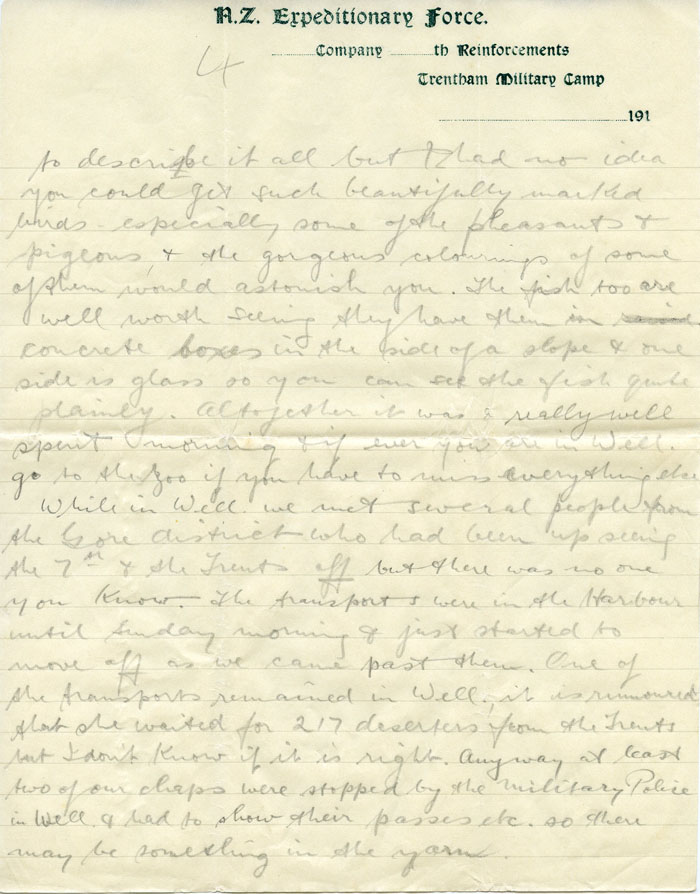 N.Z. Expeditionary Force.
Company th Reinforcements
4
Trentham Military Camp
191
to describe it all but I had no idea
you could get such beautifully marked
birds - especially some of the pheasants &
pigeons, & the gorgeous colourings of some
of them would astonish you. The fish too are
well worth seeing they have them in
concrete boxes in the side of a slope & one
side is glass so you can see the fish quite
plainly. Altogether it was a really well
spent morning & if ever you are in Well.
go to the Zoo if you have to miss everything else
While in Well. we met several people from
the Gore district who had been up seeing
the 7th & the Trents off but there was no one
you know. The transports were in the Harbour
until Sunday morning & just started to
move off as we came past them. One of
the transports remained in Well., it is rumoured
that she waited for 217 deserters from the Trents
but I don't know if it is right. Anyway at least
two of our chaps were stopped by the Military Police
in Well. & had to show their passes etc. so there
may be something in the yarn.